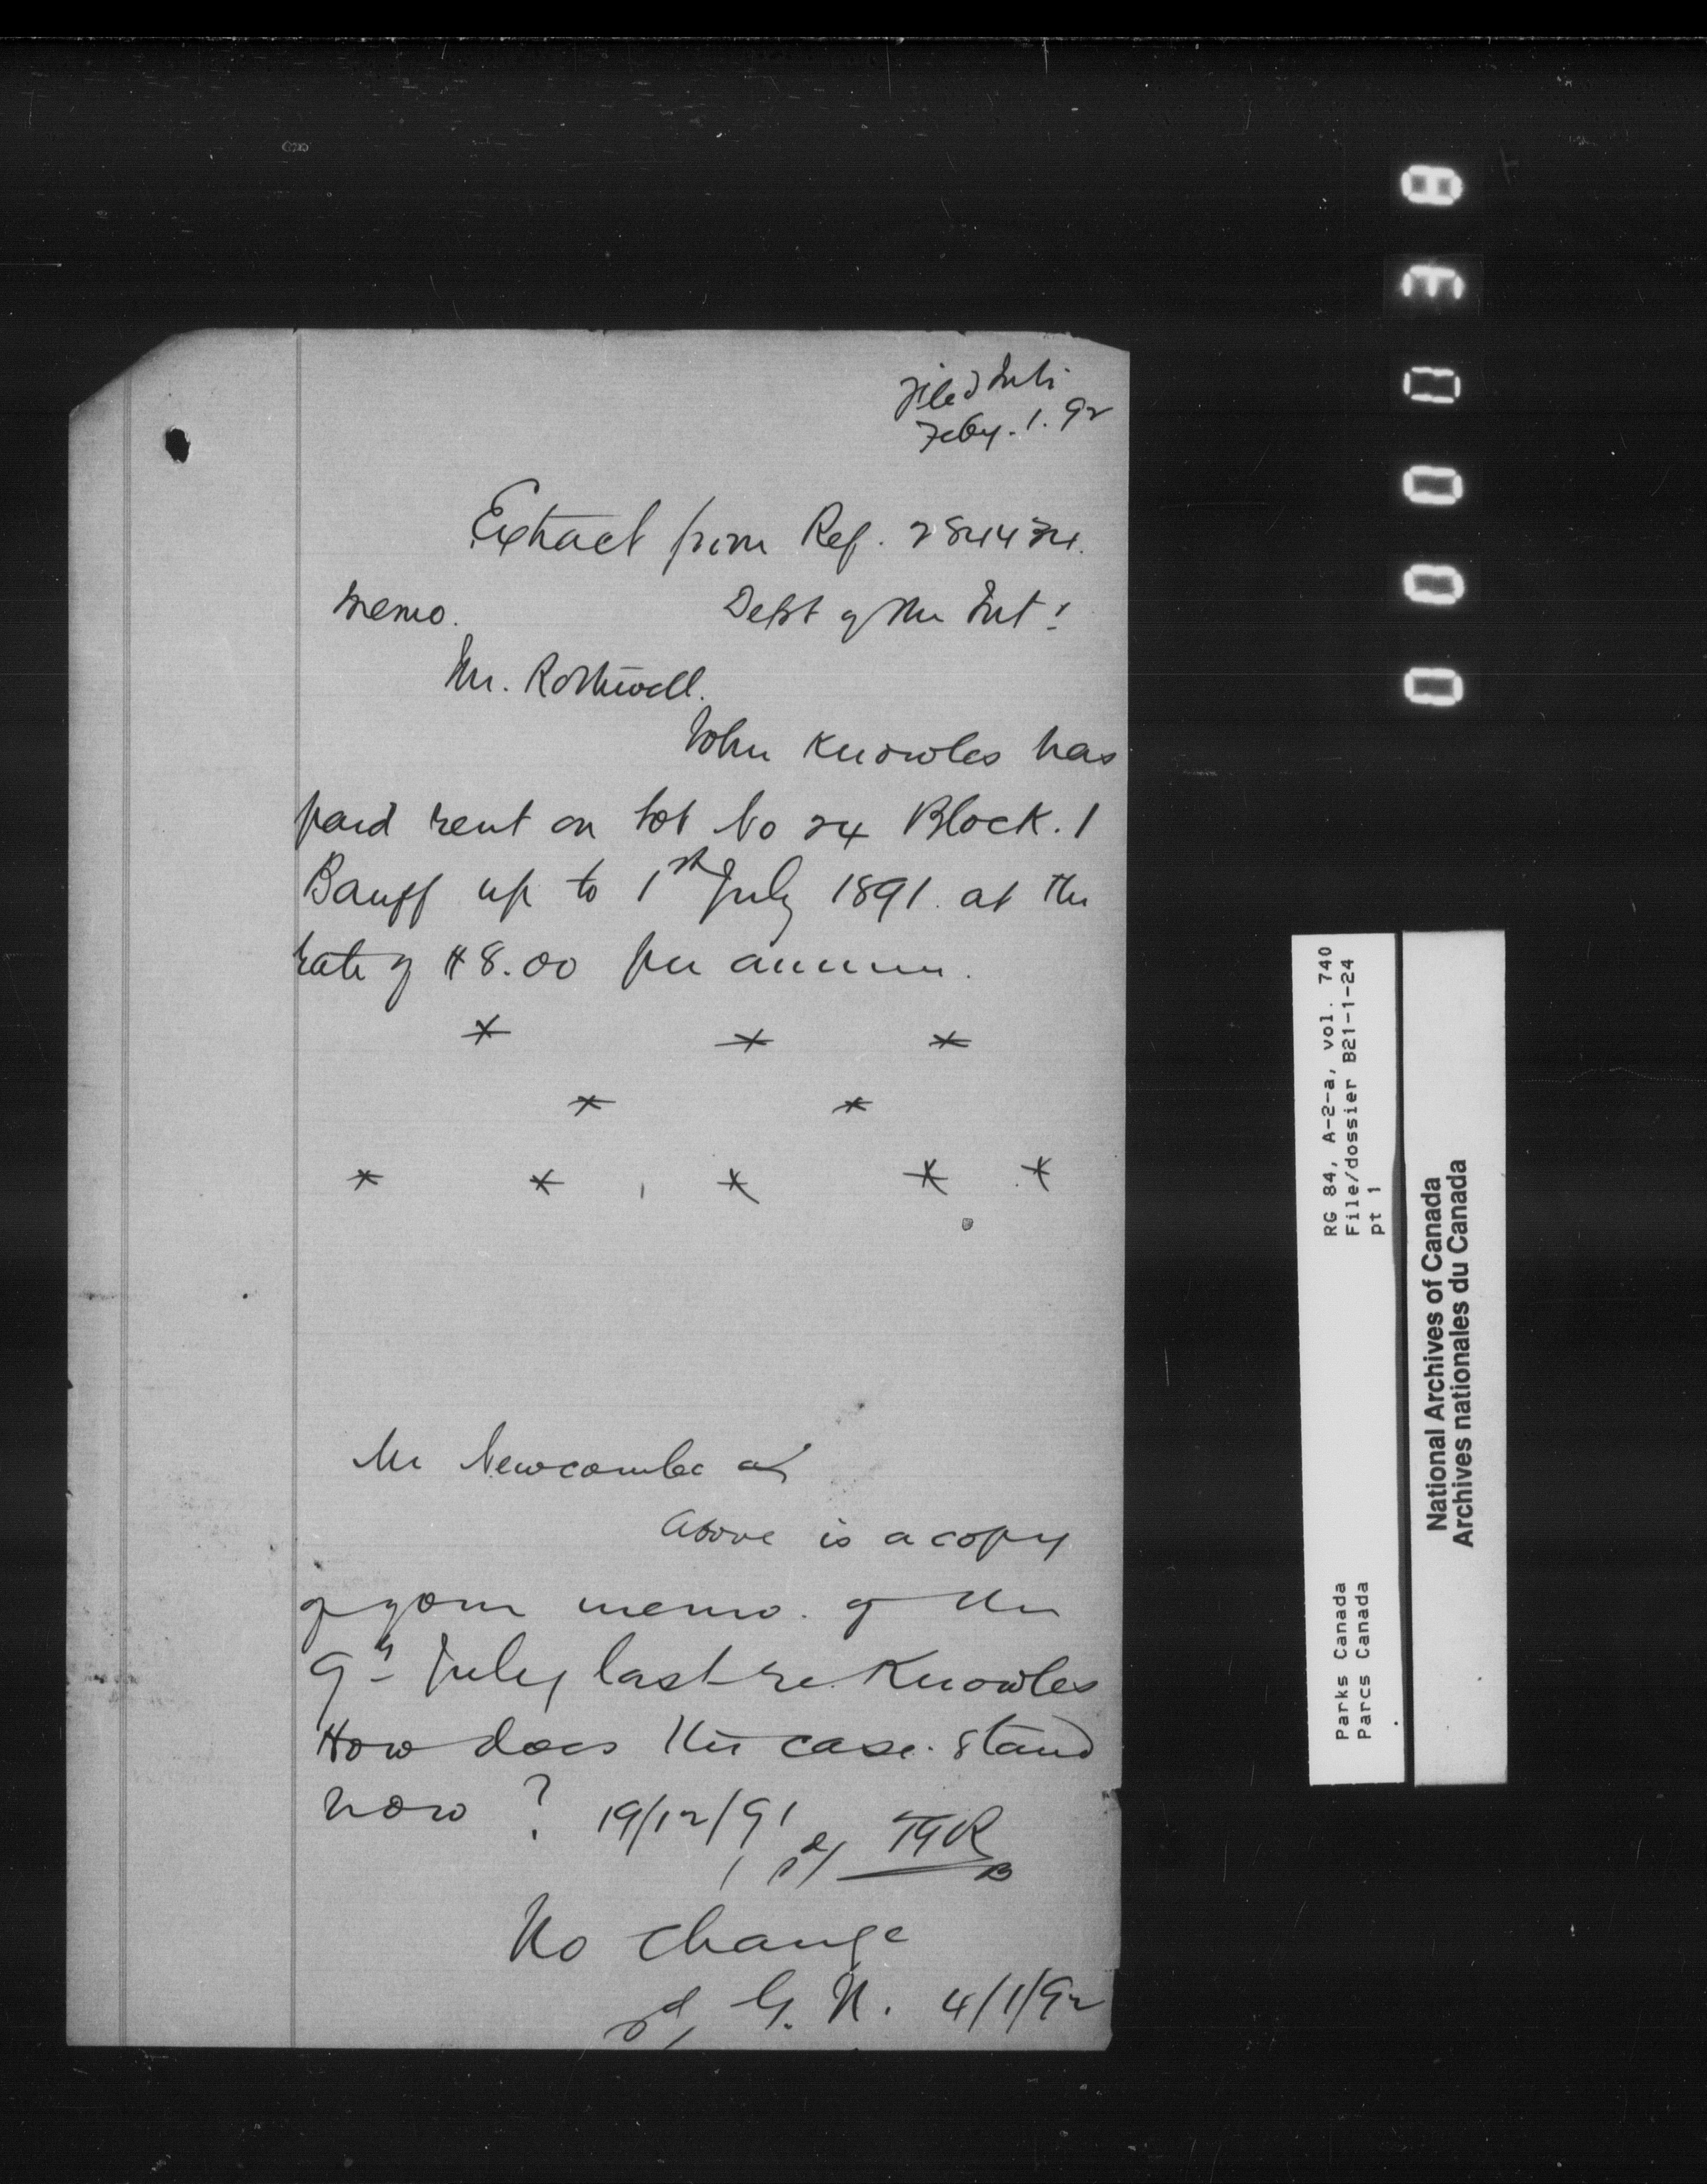 Filed
Feby. 1. 92
Extract from Ref. 284434.
Memo. Dept of the Intr
Mr. Rothwell.
John Knowles has
paid rent on Lot No 24 Block. 1
Banff up to 1st July 1891. at the
rate of $8.00 per annum.
* * *
* *
* * * * *
Mr Newcombe
Above is a copy
of your memo. of the
9th July last re. Knowles
How does the case. stand
now ? 19/12/91
sd/ TGR
B
No change
sd/ G. N. 4/1/92
RG 84, A-2-a, vol. 740
File/dossier B21-1-24
pt 1
Parks Canada
Parcs Canada
National Archives of Canada
Archives nationales du Canada